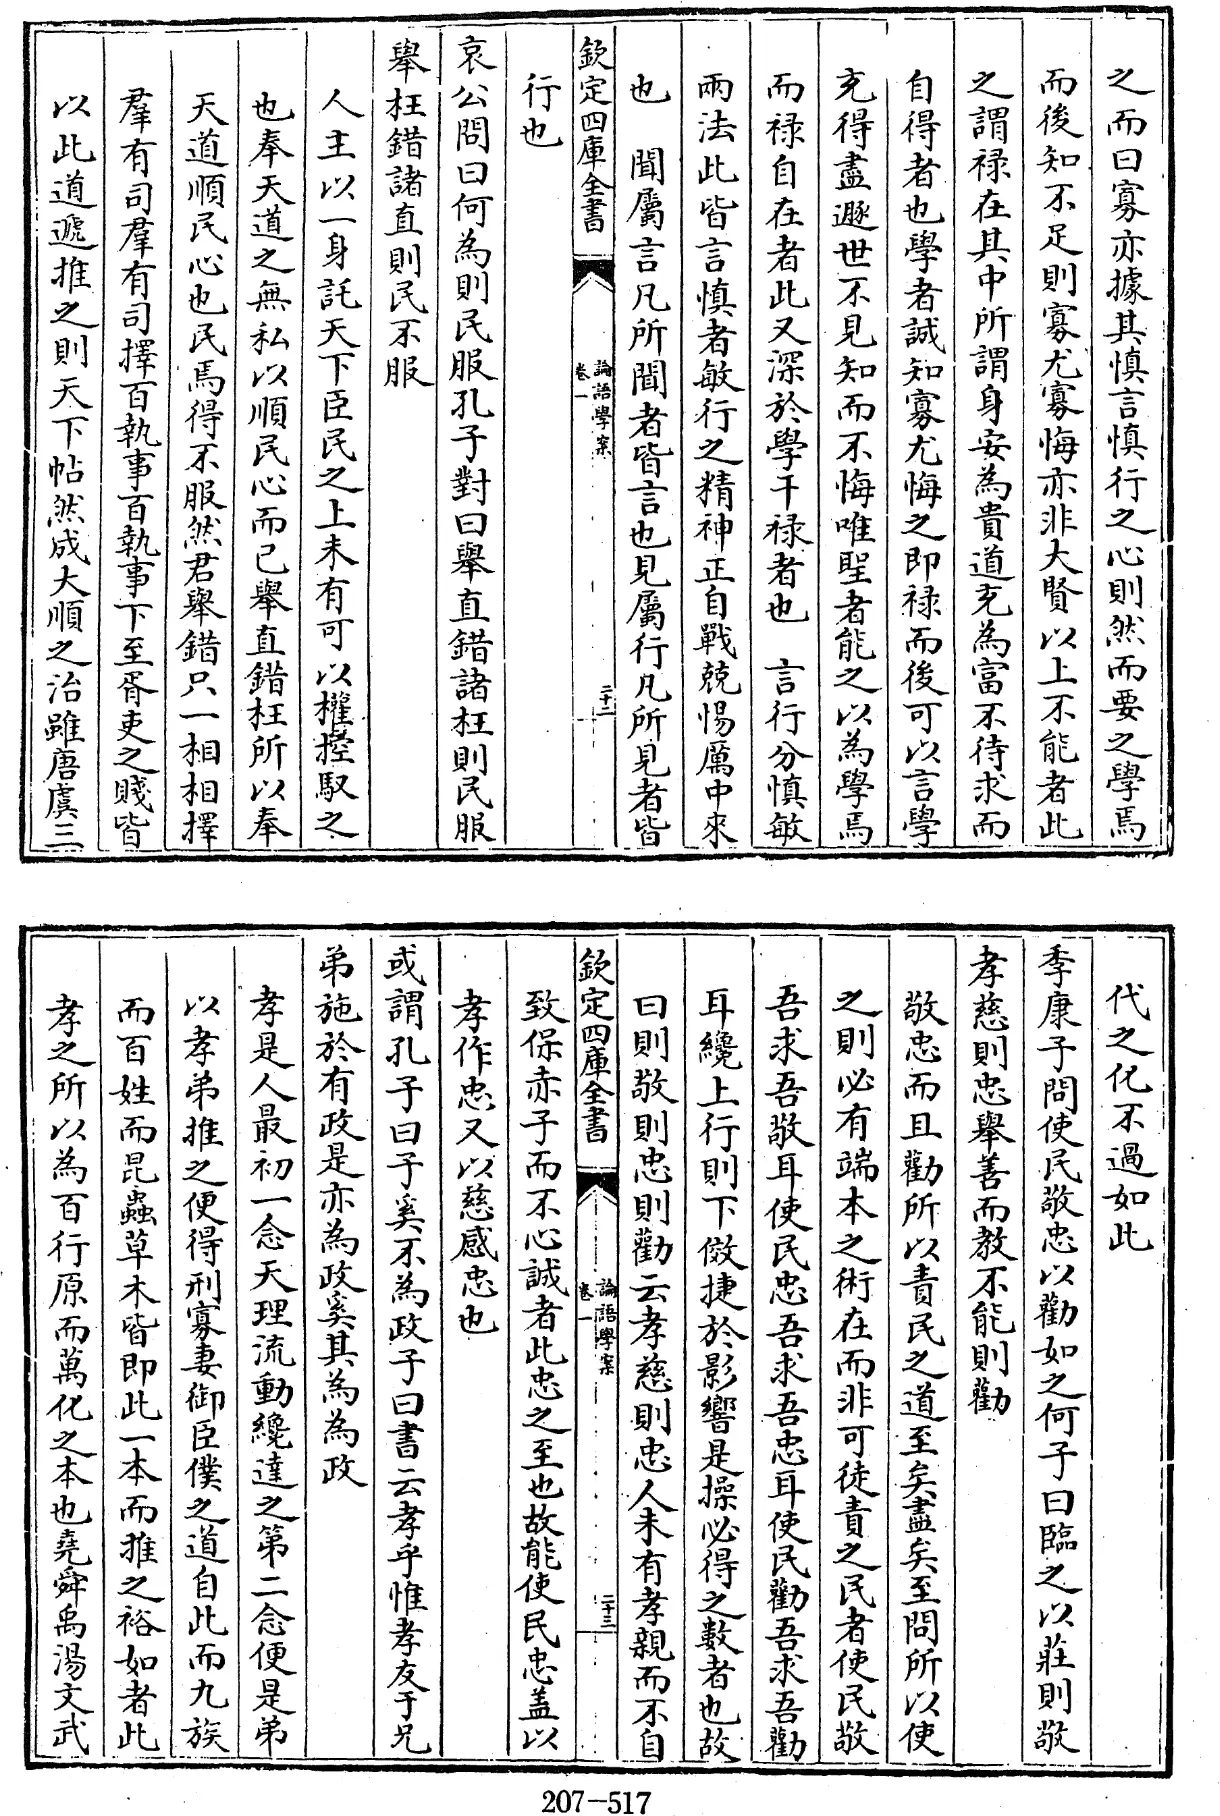 之而曰寡亦據其慎言慎行之心則然而要之學焉
而後知不足則寡尤寡悔亦非大賢以上不能者此
之謂禄在其中所謂身安為貴道充為富不待求而
自得者也學者誠知寡尤悔之即禄而後可以言學
充得盡遯世不見知而不悔唯聖者能之以為學焉
而禄自在者此又深於學干禄者也　言行分慎敏
兩法此皆言慎者敏行之精神正自戰兢惕厲中來
也　聞屬言凡所聞者皆言也見屬行凡所見者皆
欽定四庫全書
論語學案
卷一
二十二
行也
哀公問曰何為則民服孔子對曰舉直錯諸枉則民服
舉枉錯諸直則民不服
人主以一身託天下臣民之上未有可以權控馭之
也奉天道之無私以順民心而已舉直錯枉所以奉
天道順民心也民焉得不服然君舉錯只一相相擇
羣有司羣有司擇百執事百執事下至胥吏之賤皆
以此道遞推之則天下帖然成大順之治雖唐虞三
代之化不過如此
季康子問使民敬忠以勸如之何子曰臨之以莊則敬
孝慈則忠舉善而教不能則勸
敬忠而且勸所以責民之道至矣盡矣至問所以使
之則必有端本之術在而非可徒責之民者使民敬
吾求吾敬耳使民忠吾求吾忠耳使民勸吾求吾勸
耳纔上行則下傚捷於影響是操必得之數者也故
曰則敬則忠則勸云孝慈則忠人未有孝親而不自
欽定四庫全書
論語學案
卷一
二十三
致保赤子而不心誠者此忠之至也故能使民忠盖以
孝作忠又以慈感忠也
或謂孔子曰子奚不為政子曰書云孝乎惟孝友于兄
弟施於有政是亦為政奚其為為政
孝是人最初一念天理流動纔達之第二念便是弟
以孝弟推之便得刑寡妻御臣僕之道自此而九族
而百姓而昆蟲草木皆即此一本而推之裕如者此
孝之所以為百行原而萬化之本也堯舜禹湯文武
207-517